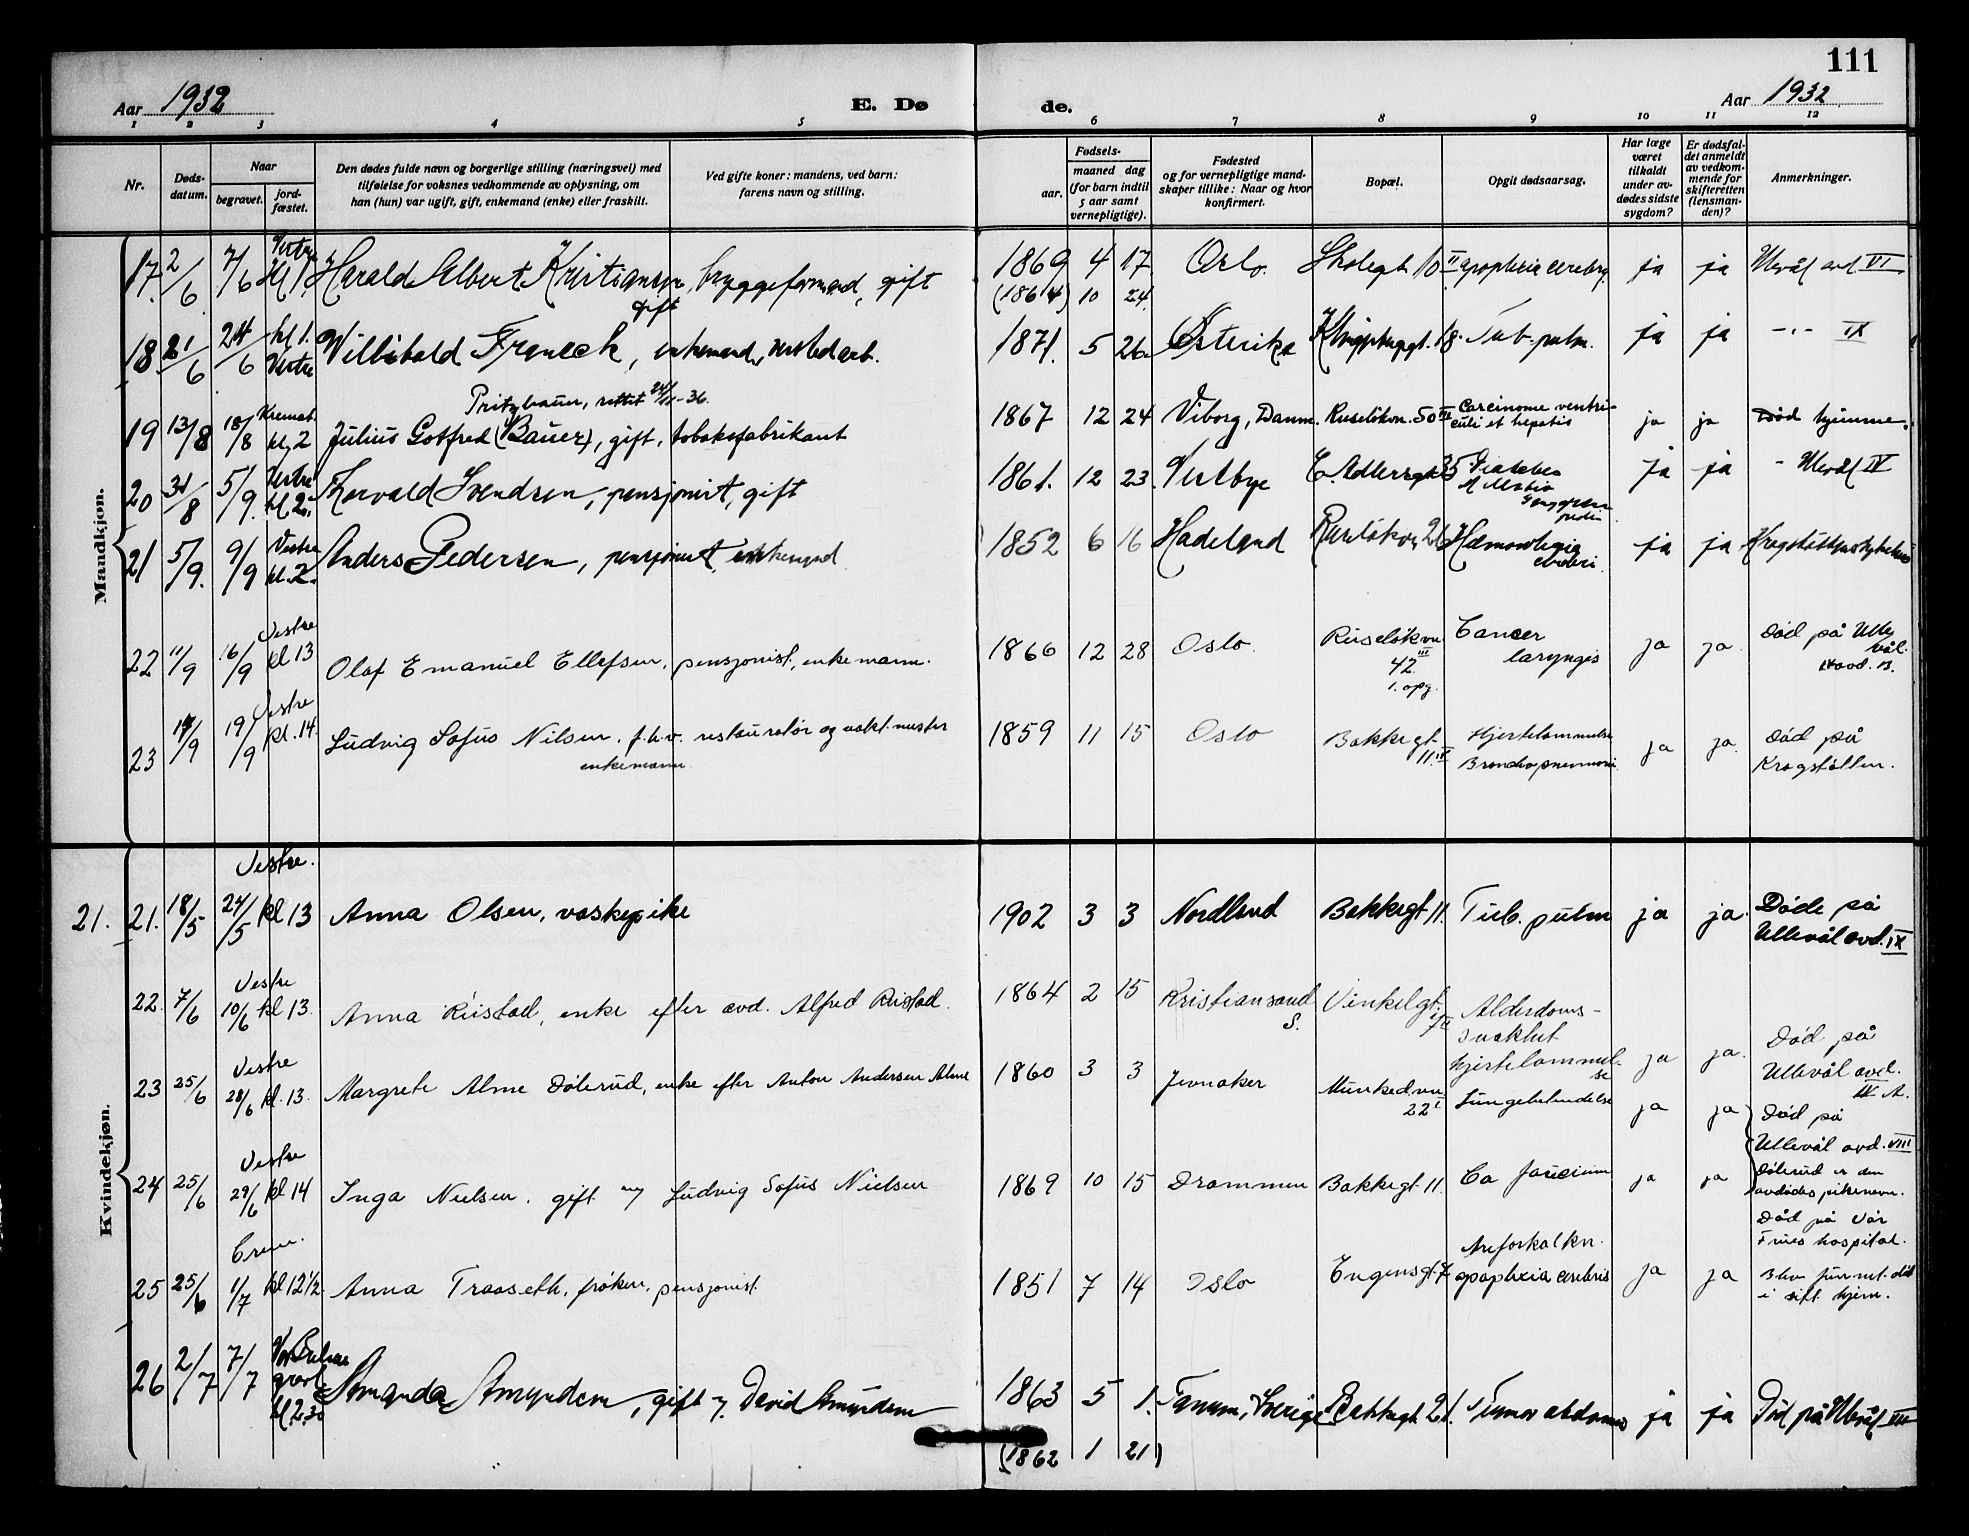 111
Aar 1932 E. Dø de. Aar 1932
1 2 3 4 5 6 7 8 9 10 11 12
Nr.
Døds-
datum.
Naar
begravet.
jord-
fæstet.
Den dødes fulde navn og borgerlige stilling (næringsvei) med
tilføielse for voksnes vedkommende av oplysning, om
han (hun) var ugift, gift, enkemand (enke) eller fraskilt.
Ved gifte koner: mandens, ved barn:
farens navn og stilling.
Fødsels-
aar.
maaned dag
(for barn indtil
5 aar samt
vernepligtige).
Fødested
og for vernepligtige mand-
skaper tillike: Naar og hvor
konfirmert.
Bopæl.
Opgit dødsaarsag.
Har læge
været
tilkaldt
under av-
dødes sidste
sygdom?
Er dødsfal-
det anmeldt
av vedkom-
mende for
skifteretten
(lensman-
den)?
Anmerkninger.
Mandkjøn.
17. 2/6 7/6 Vestre kl 1. Harald Albert Kristiansen, bryggeformand, gift 1869 4 17 Oslo. 10 II apoplexia cerebri ja ja Ulvål avd VI
(1864) 10 24
gift
18 21/6 24/6 kl 1. Vestre Willibald Franeck, enkemand, verstedarb. 1871. 5 26 Østerike 18. Tub. pulm. ja ja -"- IX
Pritzbauer, rettet 24/11-36.
19 13/8 18/8 Kremat. kl. 2 Julius Gotfred (Bauer), gift, tobaksfabrikant 1867 12 24 Viborg, Danm. Ruseløkvn. 50 III Carcinome ventri-
culi et hepatis ja ja Død hjemme.
20 31/8 5/9 Vestre kl 2. Thorvald Svendsen, pensjonist, gift 1861. 12 23. Vestbye C. Adlersgt 35 Diabetes
Mellitus
pedis ja ja - Ulvål IV
21 5/9. 9/9 Vestre kl. 2. Anders Pedersen, pensjonist, enkemand 1852 6 16 Hadeland Ruseløkvn 26 Hæmorrhagia
cerebri. ja ja
22 11/9 16/9 Vestre kl 13 Olaf Emanuel Ellefsen, pensjonist, enkemann. 1866 12 28 Oslo Ruseløkvn
42 III
1. opg. Cancer
laryngis ja ja Død på Ulle
vål.
avd. B.
23 17/9 19/9 Vestre kl. 14. Ludvig Sofus Nilsen, f.h.v. restauratør og vaktmester
enkemann 1859 11 15 Oslo Bakkegt.
11. IV Hjertelammelse
Bronchopneumoni. ja ja. død på
Krogstøtten.
Kvindekjøn.
21. 21. 18/5 24/5 Vestre. kl 13 Anna Olsen, vaskepike 1902 3 3 Nordland Bakkegt 11. Tub. pulm ja ja. Døde på
Ullevål avd. IX
22 7/6 10/6 Vestre kl 13. Anna Ristad, enke efter avd. Alfred Ristad. 1864 2 15 Kristiansand
S. Vinkelgt. Alderdoms-
svakhet
hjertelammel-
se ja ja. Død på
Ullevål avd.
IV A.
23 25/6 28/6 Vestre kl. 13. Margrete Alme Dølerud, enke efter Anton Andersen Alme 1860 3 3 Jevnaker Munkedvn
22 I Lungebetendelse ja ja Død på
Ullevål avd. VIII
Dølerud er den
avdødes pikenavn.
24 25/6 29/6 Vestre kl 14 Inga Nielsen, gift m/ Ludvig Sofus Nielsen 1869 10 15 Drammen Bakkegt 11. Ca faucium ja ja Død på Vår
Frues hospital.
25 25/6 1/7 Crem. kl 12 1/2. Anna Traaseth, frøken, pensjonist. 1851 7 14 Oslo Engensgt. 7 Areforkalkn.
apoplexia cerebris ja ja Blev funnet død
i sitt hjem.
26 2/7 7/7 kl 2.30 Amanda Amundsen, gift m. David Amundsen 1863 5 1. Tanum, Sverige Bakkegt 21. Tumor abdomis ja ja Død på Ulvål VIII
(1862 1 21)